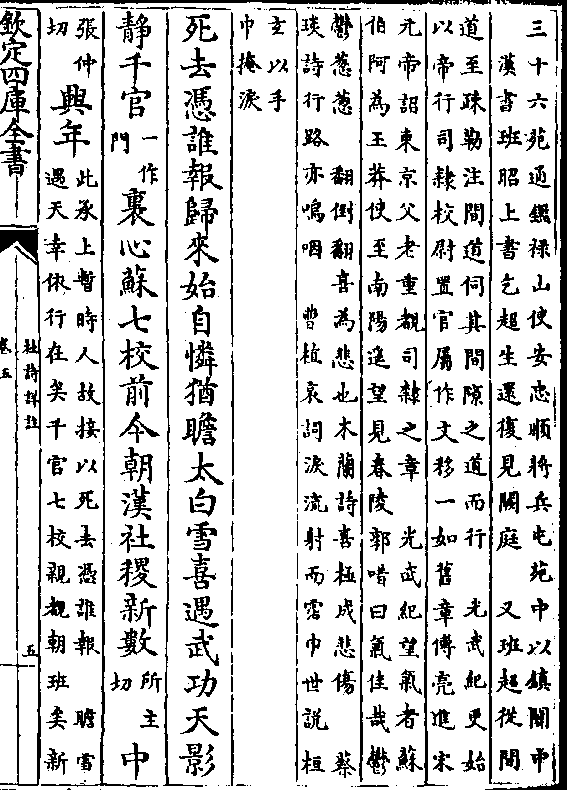 三十六苑通鑑祿山使安忠順將兵屯苑中以鎮關中
漢書班昭上書乞超生還復見闕庭　又班超從間
道至疎勒注間道伺其間隙之道而行　光武紀更始
以帝行司隸校尉置官屬作文移一如舊章傅亮進宋
元帝詔東京父老重覩司隸之章　光武紀望氣者蘇
伯阿為王莽使至南陽遥望見舂陵郭唶曰氣佳哉鬱
鬱葱葱　翻倒翻喜為悲也木蘭詩喜極成悲傷　蔡
琰詩行路亦嗚咽　曹植哀詞淚流射而霑巾世說桓
玄以手
巾掩淚
死去憑誰報歸來始自憐猶瞻太白雪喜遇武功天影
靜千官一作門裏心蘇七校前今朝漢社稷新數所主切中
張仲切興年此承上暫時人故接以死去憑誰報　瞻雪
遇天幸依行在矣千官七校親覩朝班矣新
欽定四庫全書
杜詩詳註
卷五
五